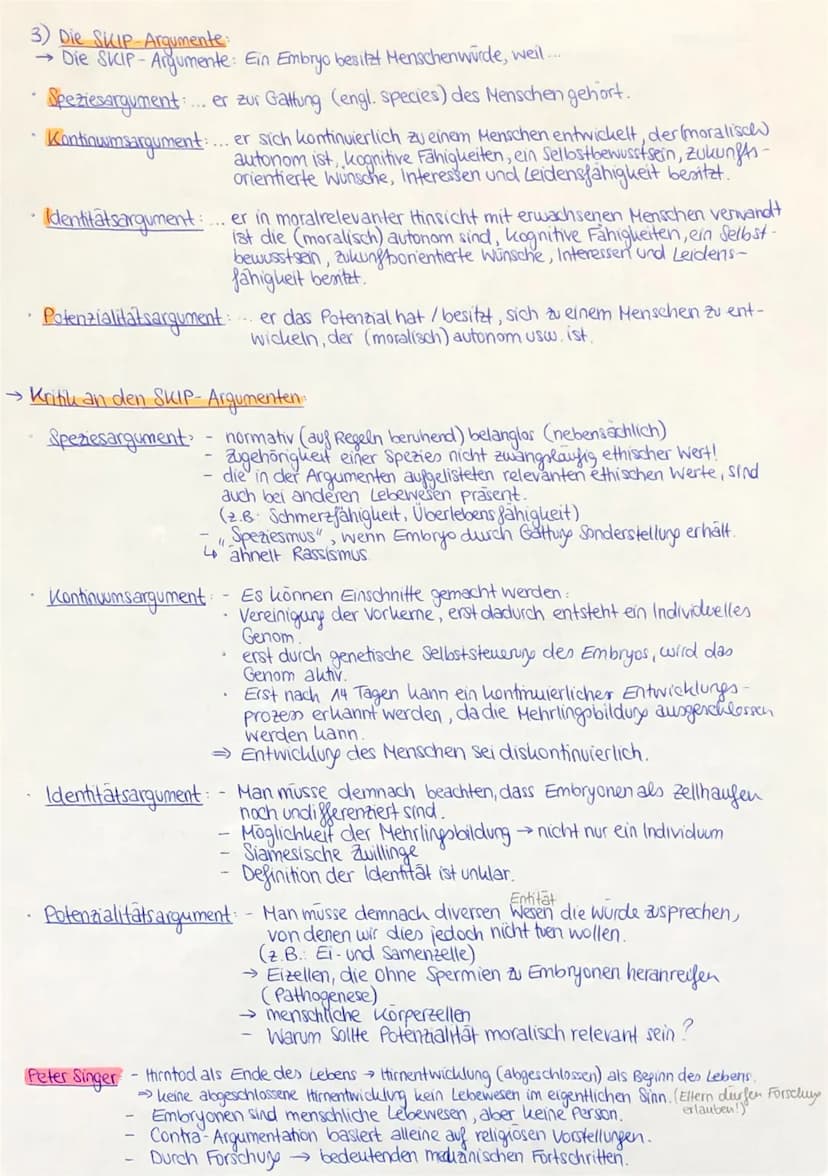 3) Die SKIP-Argumente:
→ Die SKIP-Argumente: Ein Embryo besitzt Menschenwürde, weil ...
· Speziesargument: ... er zur Gattung (engl. species) des Menschen gehört.
· Kontinuumsargument: ... er sich kontinuierlich zu einem Menschen entwickelt, der (moralisch)
autonom ist, kognitive Fähigkeiten, ein Selbstbewusstsein, zukunfts-
orientierte Wünsche, Interessen und Leidensfähigkeit besitzt.
· Identitätsargument: ... er in moralrelevanter Hinsicht mit erwachsenen Menschen verwandt
ist die (moralisch) autonom sind, kognitive Fähigkeiten, ein Selbst-
bewusstsein, zukunftsorientierte Wünsche, Interessen und Leidens-
fähigkeit besitzt.
· Potenzialitätsargument: ... er das Potenzial hat / besitzt, sich zu einem Menschen zu ent-
wickeln, der (moralisch) autonom usw. ist.
→ Kritik an den SKIP-Argumenten:
· Speziesargument: - normativ (auf Regeln beruhend) belanglos (nebensächlich)
- Zugehörigkeit einer Spezies nicht zwangsläufig ethischer Wert!
- die in der Argumenten aufgelisteten relevanten ethischen Werte, sind
auch bei anderen Lebewesen präsent.
(z.B. Schmerzfähigkeit, Überlebensfähigkeit)
- "Speziesmus", wenn Embryo durch Gattung Sonderstellung erhält.
↳ ähnelt Rassismus
· Kontinuumsargument: - Es können Einschnitte gemacht werden:
· Vereinigung der Vorkerne, erst dadurch entsteht ein Individuelles
Genom.
· erst durch genetische Selbststeuerung des Embryos, wird das
Genom aktiv.
· Erst nach 14 Tagen kann ein kontinuierlicher Entwicklungs-
prozess erkannt werden, da die Mehrlingsbildung ausgeschlossen
werden kann.
⇒ Entwicklung des Menschen sei diskontinuierlich.
· Identitätsargument: - Man müsse demnach beachten, dass Embryonen als Zellhaufen
noch undifferenziert sind.
- Möglichkeit der Mehrlingsbildung → nicht nur ein Individuum
- Siamesische Zwillinge
- Definition der Identität ist unklar.
Entität
· Potenzialitätsargument: - Man müsse demnach diversen Wesen die Würde zusprechen,
von denen wir dies jedoch nicht tuen wollen.
(z.B.: Ei- und Samenzelle)
→ Eizellen, die ohne Spermien zu Embryonen heranreifen
(Pathogenese)
→ menschliche Körperzellen
- Warum sollte Potenzialität moralisch relevant sein?
Peter Singer - Hirntod als Ende des Lebens → Hirnentwicklung (abgeschlossen) als Beginn des Lebens.
⇒ keine abgeschlossene Hirnentwicklung kein Lebewesen im eigentlichen Sinn. (Eltern dürfen Forschung
erlauben!)
- Embryonen sind menschliche Lebewesen, aber keine Person.
- Contra-Argumentation basiert alleine auf religiösen Vorstellungen.
- Durch Forschung → bedeutenden medizinischen Fortschritten.